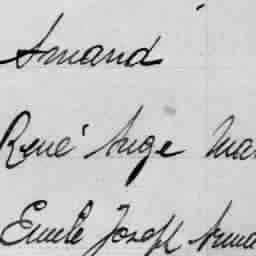 Amand
René Ange Mar
Emile Joseph Arma